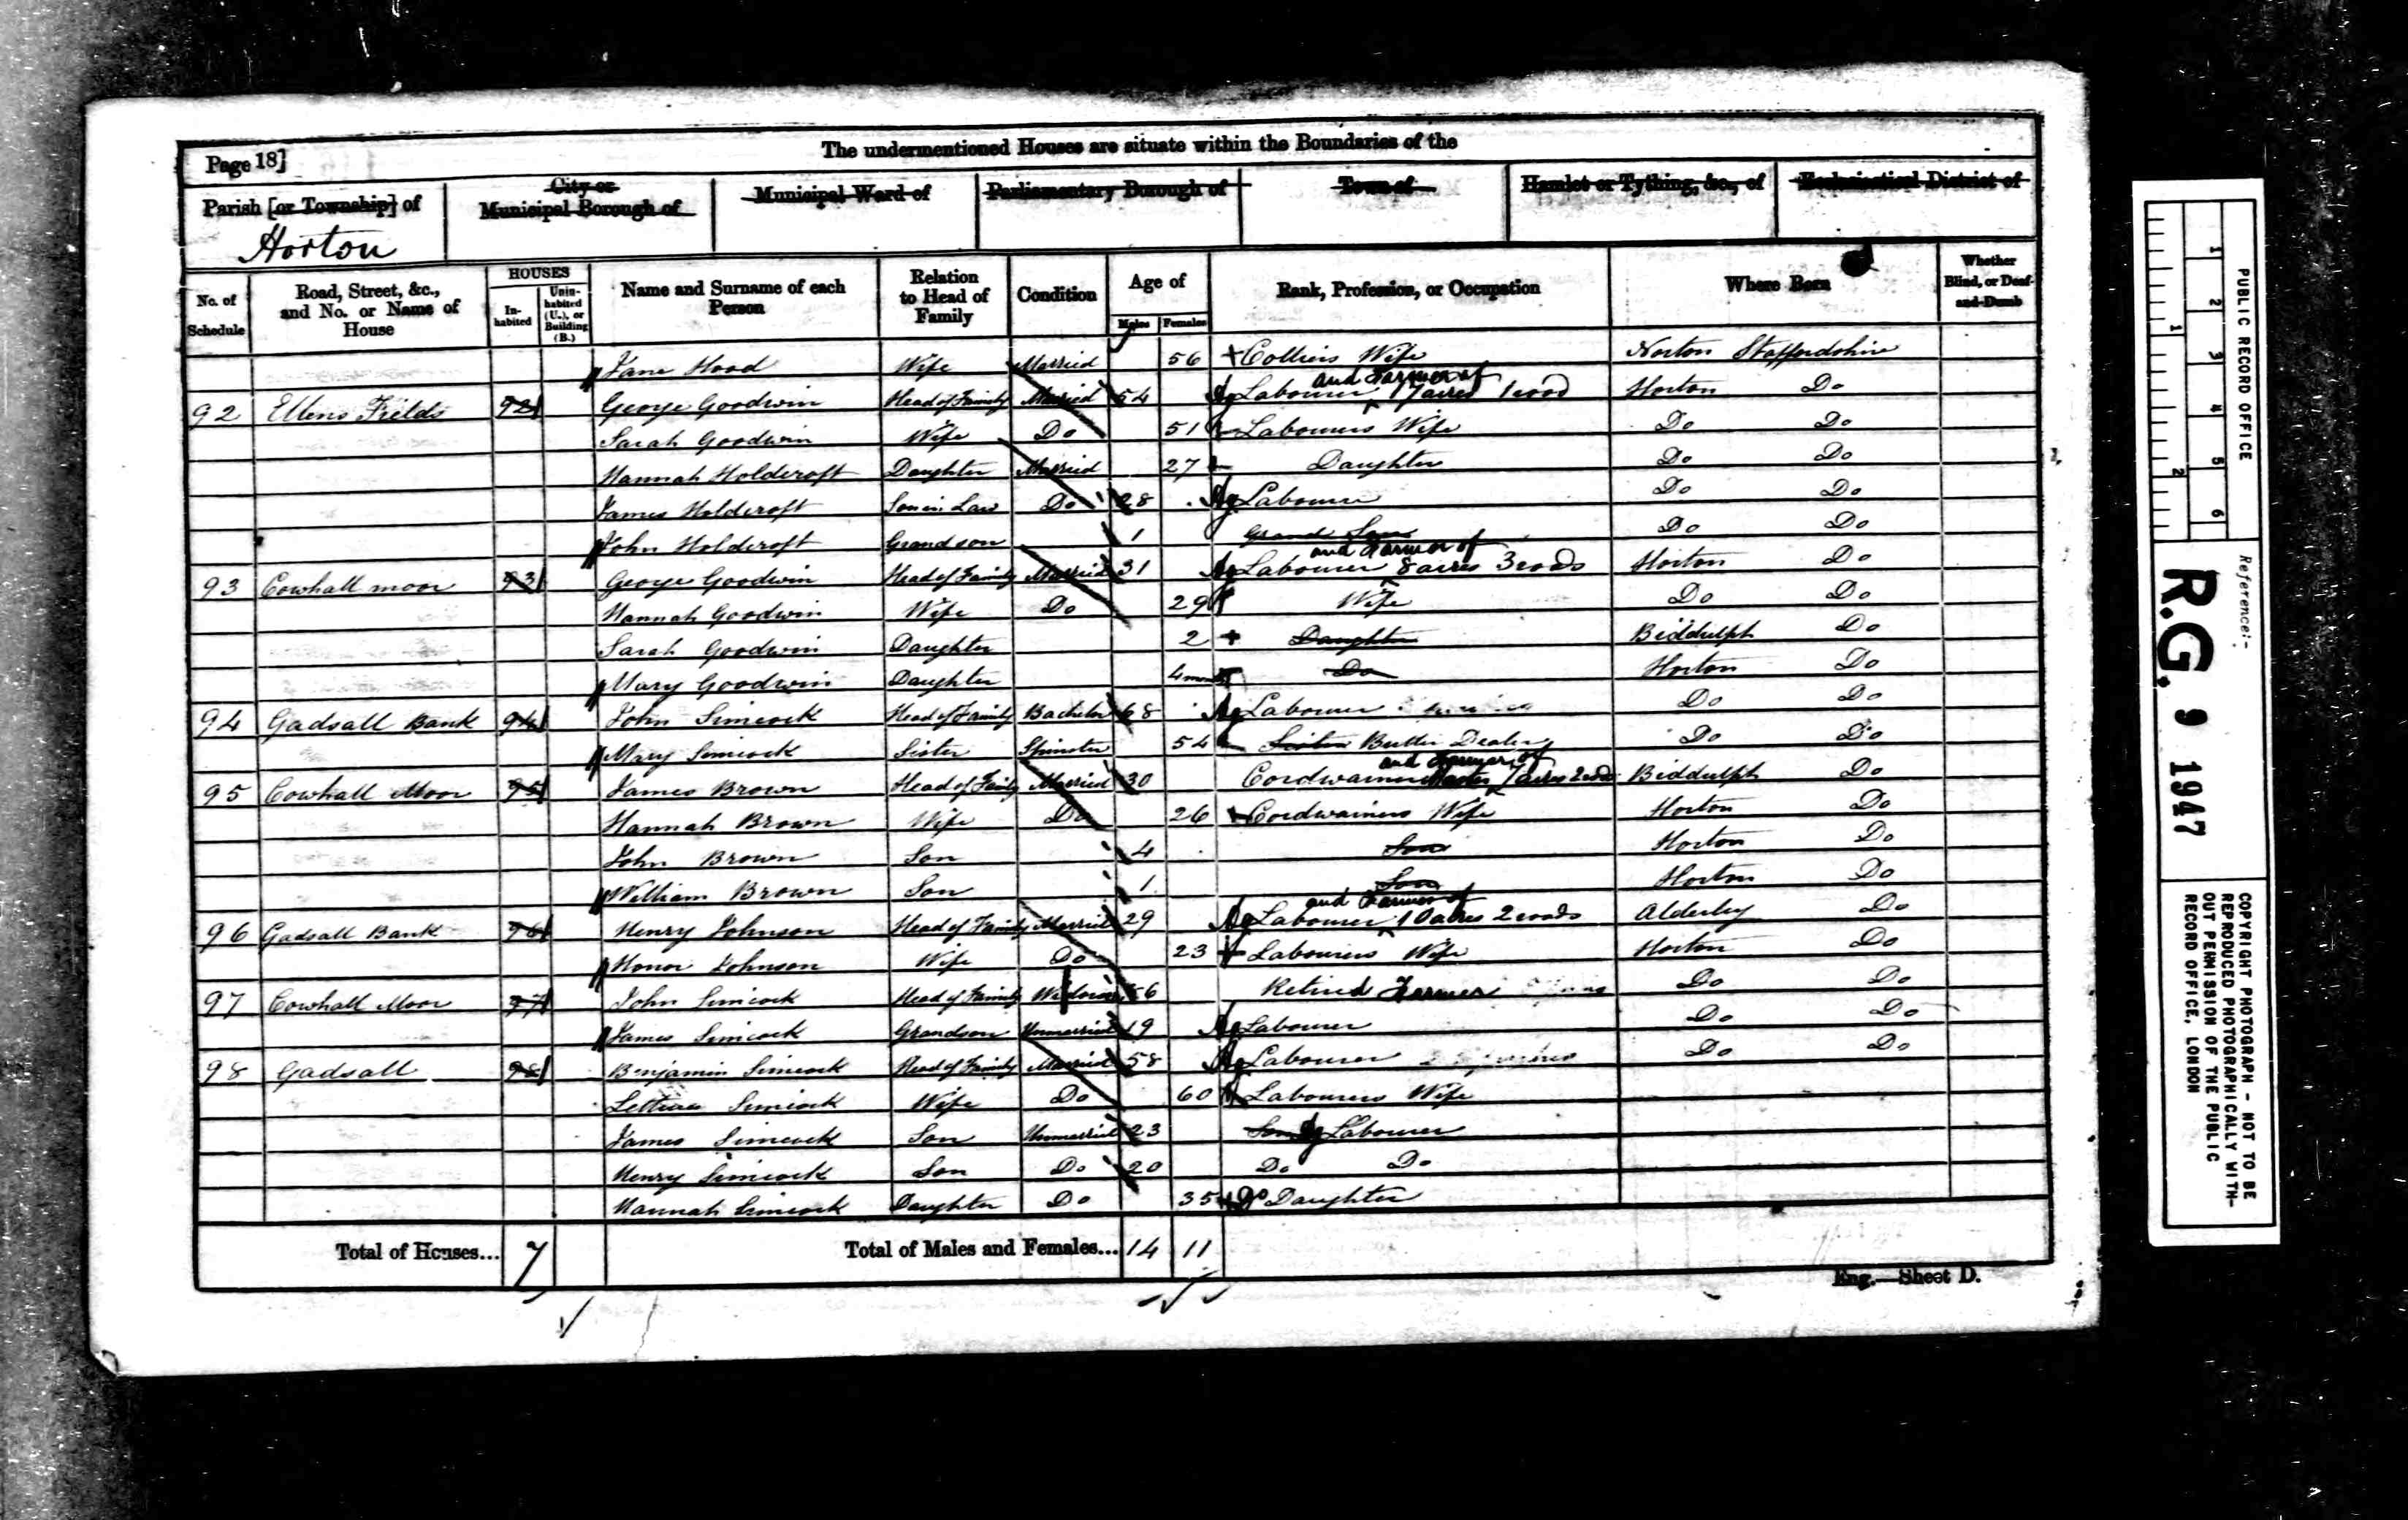 The undermentioned Houses are situate within the Boundaries of the
Page 18]
Parish [or Township] of
Horton
City or
Municipal Borough of
Municipal Ward of
Parliamentary Borough of
Town of
Hamlet or Tything, &c., of
Ecclesiastical District of
No. of Schedule
Road, Street, &c., and No. or Name of House
HOUSES
In-habited
Unin-habited (U.), or Building (B.)
Name and Surname of each Person
Relation to Head of Family
Condition
Age of
Males Females
Rank, Profession, or Occupation
Where Born
Whether Blind, or Deaf-and-Dumb
Jane Hood Wife Married 56 Colliers Wife Norton Staffordshire
92 Ellens Fields 92 George Goodwin Head of Family Married 54 Ag Labourer and Farmer of 17 acres 1 rood Horton Do
Sarah Goodwin Wife Do 51 Labourers Wife Do Do
Hannah Holdcroft Daughter Married 27 Daughter Do Do
James Holdcroft Son in Law Do 28 Ag Labourer Do Do
John Holdcroft Grandson 1 Grand Son Do Do
93 Cowhall moor 93 George Goodwin Head of Family Married 31 Ag Labourer and Farmer of 8 acres 3 roods Horton Do
Hannah Goodwin Wife Do 29 Wife Do Do
Sarah Goodwin Daughter 2 Daughter Biddulph Do
Mary Goodwin Daughter 4 mon Do Horton Do
94 Gadsall Bank 94 John Simcock Head of Family Bachelor 68 Ag Labourer Do Do
Mary Simcock Sister Spinster 54 Sister Butter Dealer Do Do
95 Cowhall Moor 95 James Brown Head of Family Married 30 Cordwainer Master and Farmer of 7 acres 2 roods Biddulph Do
Hannah Brown Wife Do 26 Cordwainers Wife Horton Do
John Brown Son 4 Son Horton Do
William Brown Son 1 Son Horton Do
96 Gadsall Bank 96 Henry Johnson Head of Family Married 29 Ag Labourer and Farmer of 10 acres 2 roods Alderley Do
Honor Johnson Wife Do 23 Labourers Wife Horton Do
97 Cowhall Moor 97 John Simcock Head of Family Widower 56 Retired Farmer Do Do
James Simcock Grandson Unmarried 19 Ag Labourer Do Do
98 Gadsall 98 Benjamin Simcock Head of Family Married 58 Ag Labourer Do Do
Simcock Wife Do 60 Labourers Wife
James Simcock Son Unmarried 23 Son Ag Labourer
Henry Simcock Son Do 20 Do Do
Hannah Simcock Daughter Do 35 Daughter
Total of Houses... 7
Total of Males and Females... 14 11
Eng.—Sheet D.
PUBLIC RECORD OFFICE
1 2 3 4 5 6
1 2
Reference:-
R.G. 9 1947
COPYRIGHT PHOTOGRAPH - NOT TO BE
REPRODUCED PHOTOGRAPHICALLY WITH-
OUT PERMISSION OF THE PUBLIC
RECORD OFFICE, LONDON